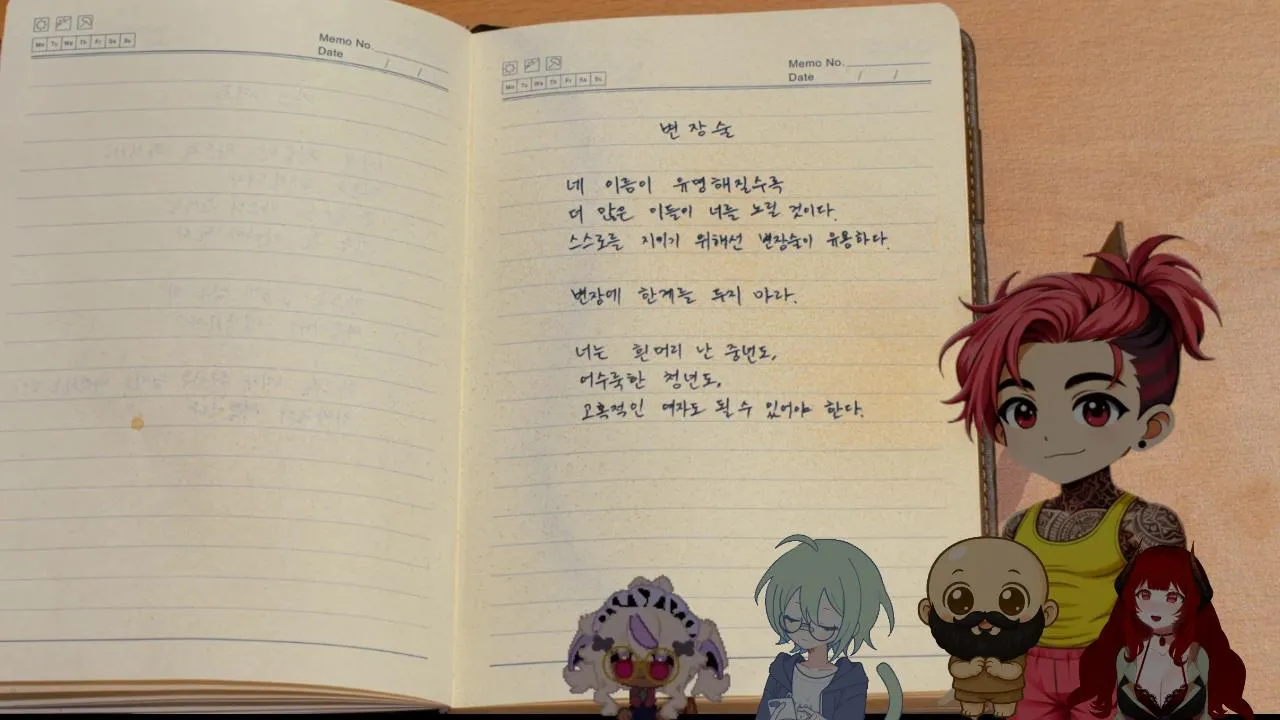 Mo Tu We Th Fr Sa Su
Memo No.
Date / /
Mo Tu We Th Fr Sa Su
Memo No.
Date / /
변장술
네 이름이 유명해질수록
더 많은 이들이 너를 노릴 것이다.
스스로를 지키기 위해선 변장술이 유용하다.
변장에 한계를 두지 마라.
너는 흰머리 난 중년도,
어수룩한 청년도,
고혹적인 여자도 될 수 있어야 한다.